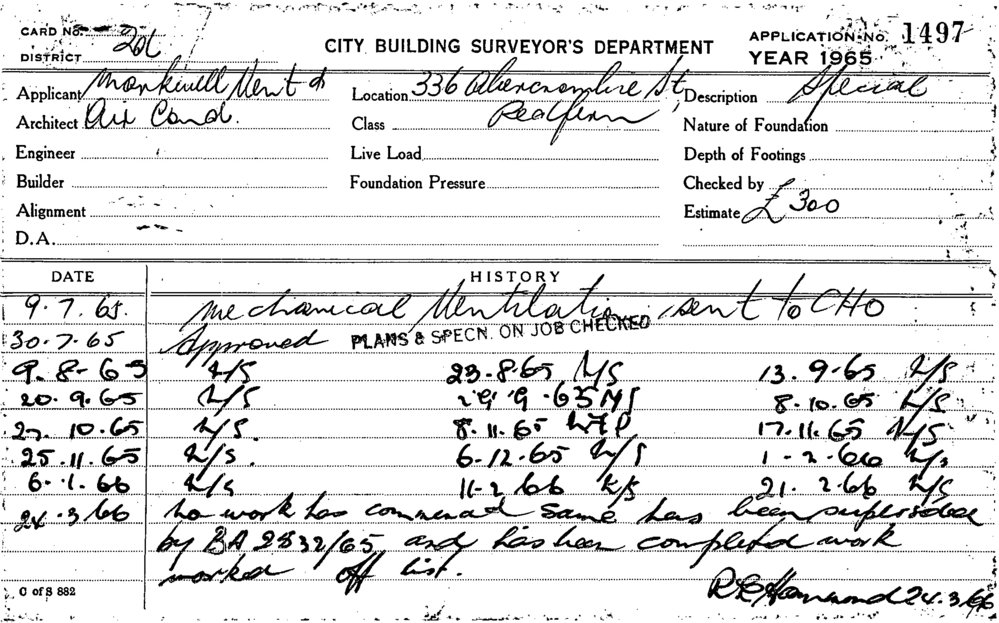 CARD No. 20L
CITY BUILDING SURVEYOR'S DEPARTMENT
APPLICATION No. 1497
DISTRICT
YEAR 1965
Applicant Vent &
Location 336 Abercrombie St,
Description Special
Architect Air Cond.
Redfern
Class
Nature of Foundation
Engineer
Live Load
Depth of Footings
Builder
Foundation Pressure
Checked by
Alignment
Estimate £300
D.A.
DATE HISTORY
9.7.65. Mechanical Ventilation sent to CHO
30.7.65 Approved PLANS & SPECN. ON JOB CHECKED
9.8.65 N/S 23.8.65 N/S 13.9.65 N/S
20.9.65 N/S 29.9.65 N/S 8.10.65 N/S
27.10.65 N/S. 8.11.65 17.11.65 N/S
25.11.65 N/S. 6.12.65 N/S 1-2-66 N/S
6.1.66 N/S 11-2.66 N/S 21.2.66 N/S
24.3.66 no work has commenced same has been superseded
by BA 2832/65 and has been completed work
marked off list.
C of S 882
24.3.66